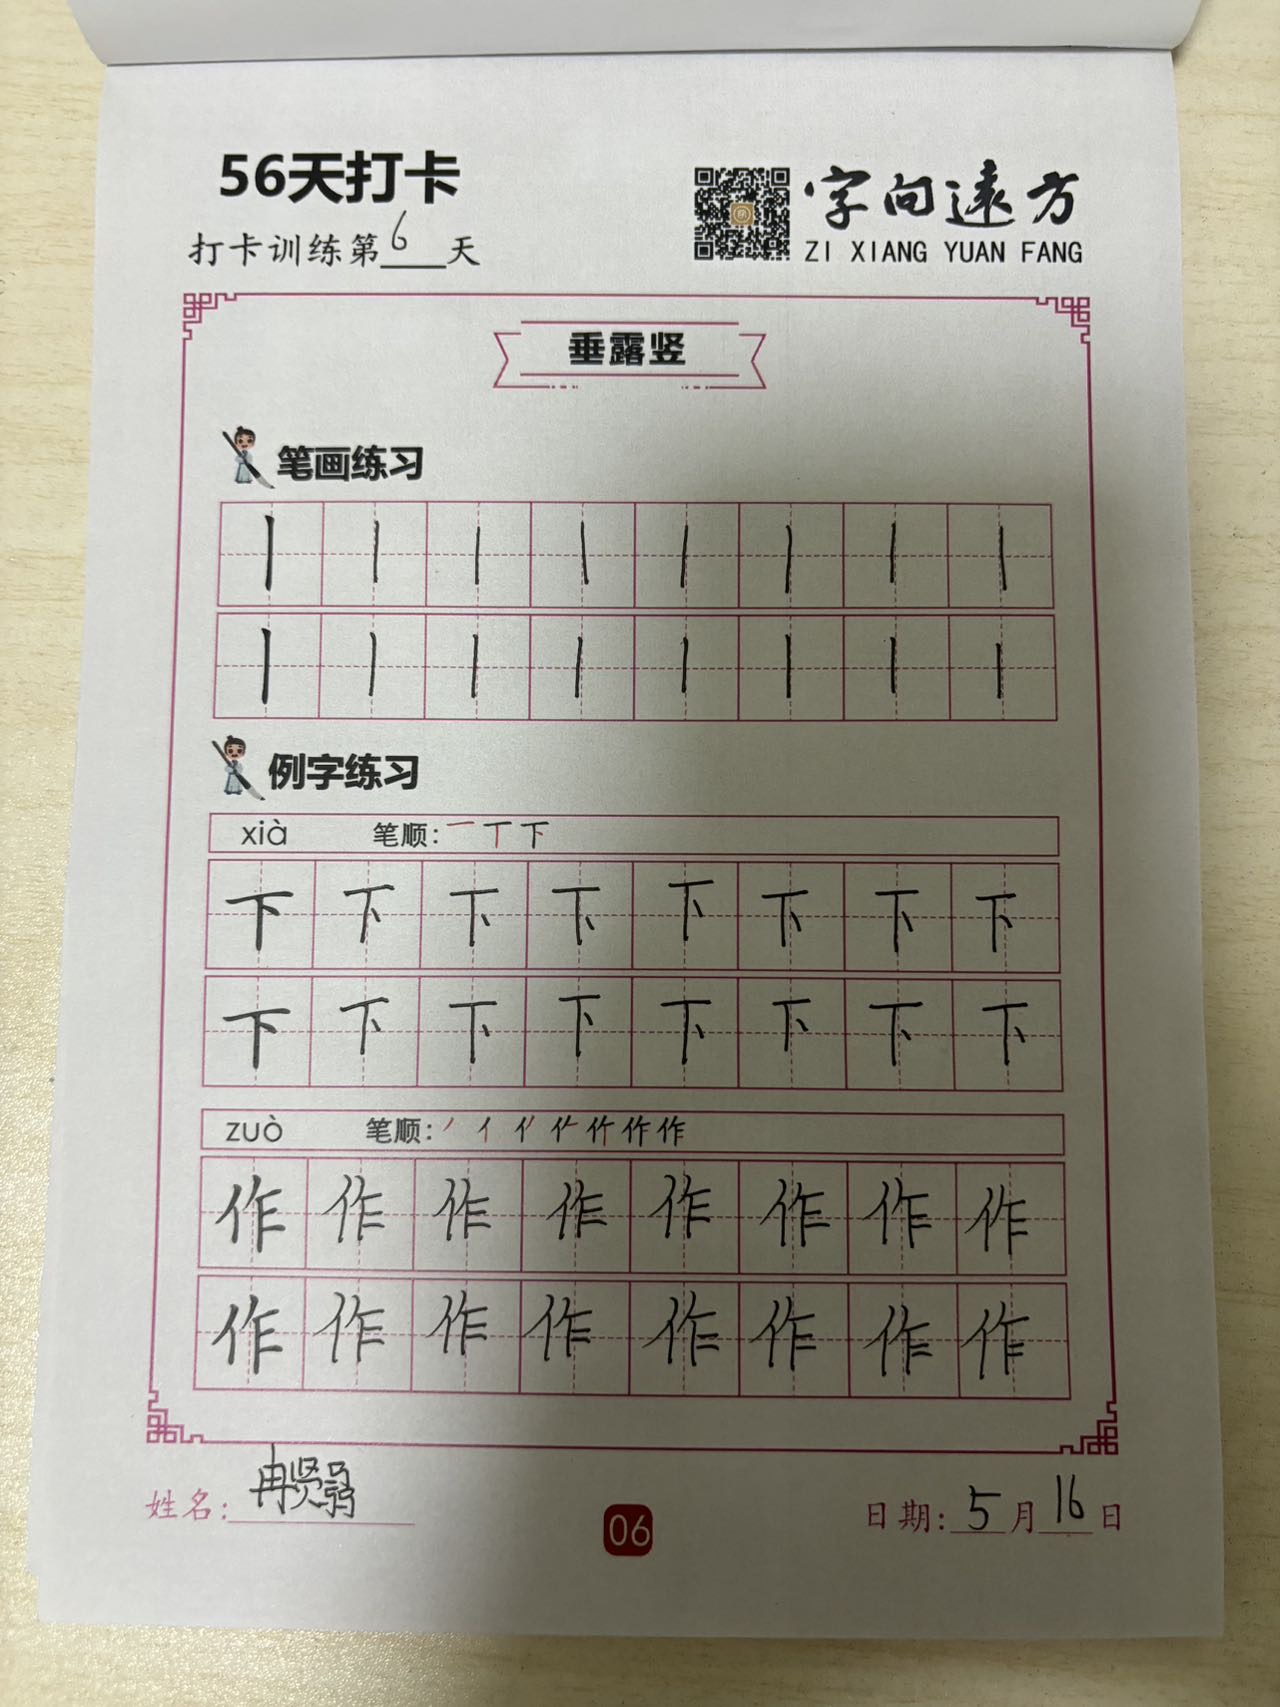 56天打卡
打卡训练第6天
字向远方
ZI XIANG YUAN FANG
垂露竖
笔画练习
丨丨丨丨丨丨丨丨
丨丨丨丨丨丨丨丨
例字练习
xià 笔顺: 一丅下
下下下下下下下下
下下下下下下下下
zuò 笔顺: 丿亻作作
作作作作作作作作
作作作作作作作作
姓名: 冉贤
06
日期: 5月16日